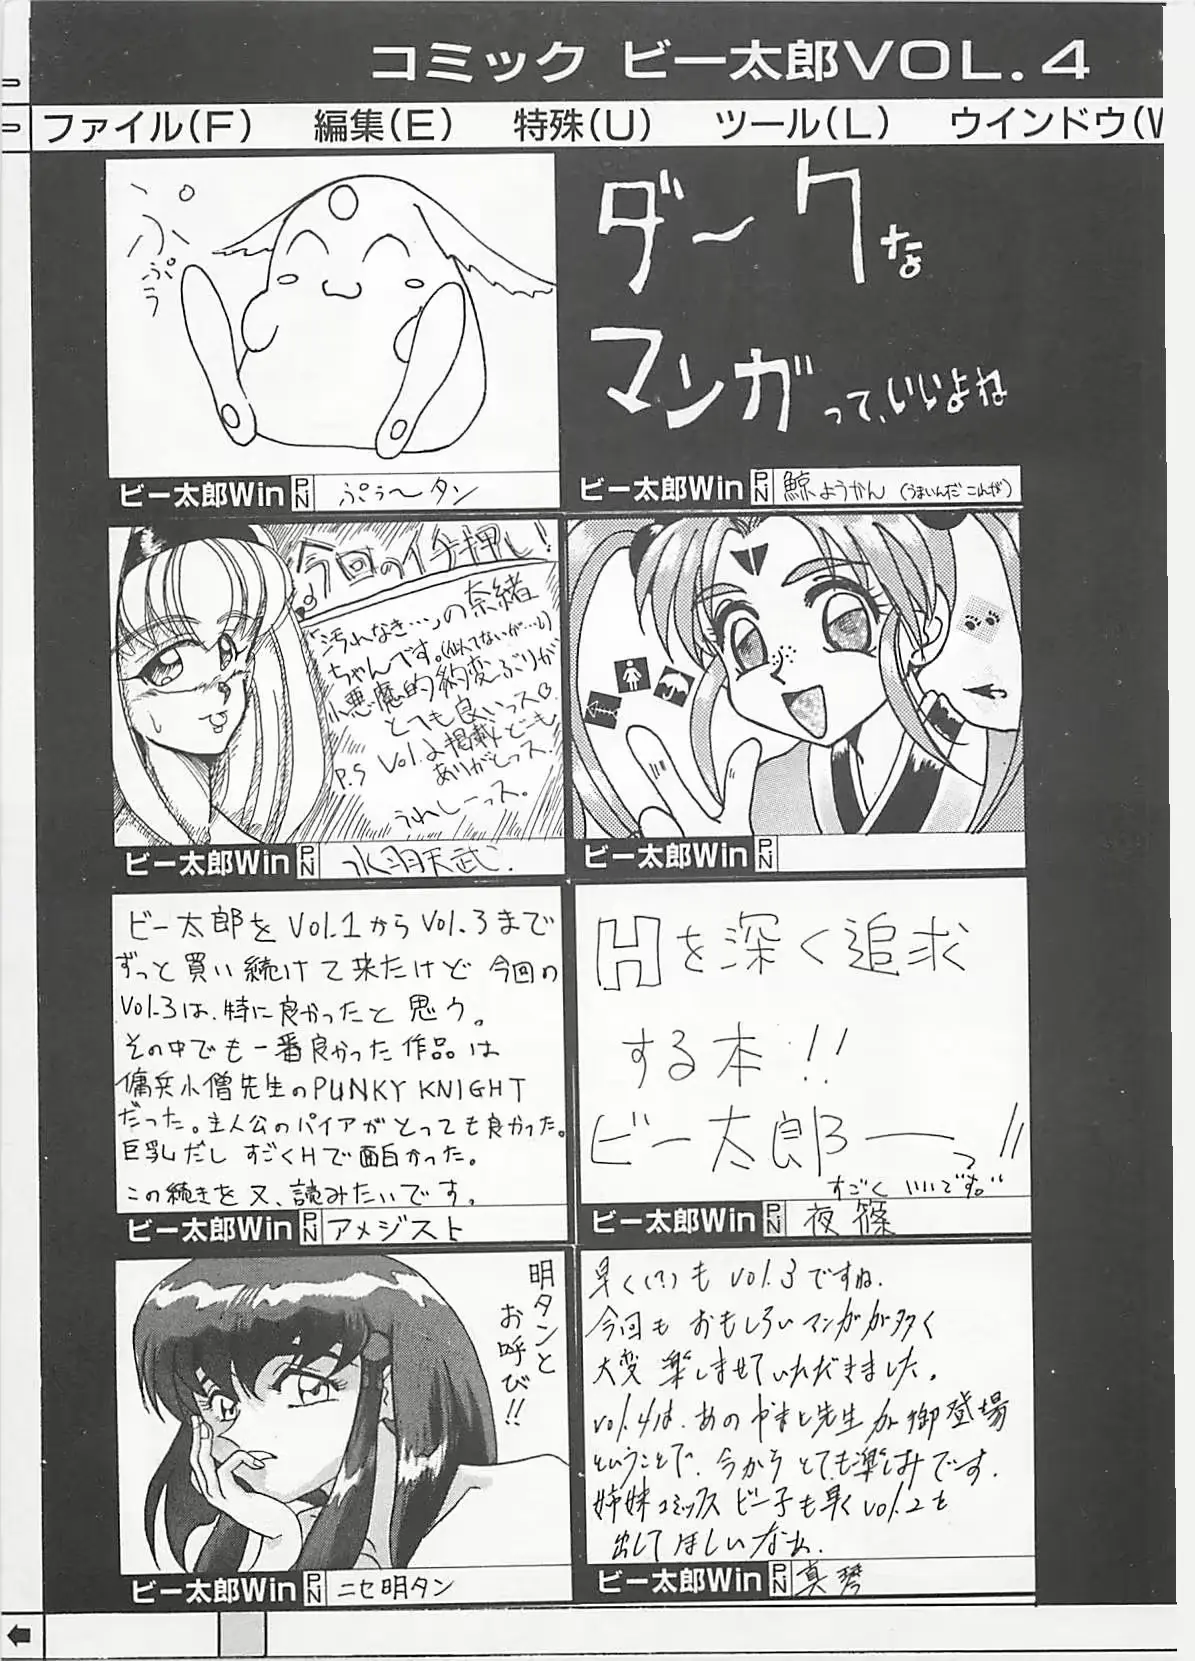 コミック ビー太郎VOL.4
ファイル(F) 編集(E) 特殊(U) ツール(L) ウインドウ(W
ぷ。
ぷぅ
ビー太郎Win PN ぷぅ〜タン
ダークな
マンガって、いいよね
ビー太郎Win PN 鯨ようかん (うまいんだこれが)
今回のイチ押し!
「汚れなき…」の奈緒
ちゃんです。(似てないが…)
小悪魔的豹変ぶりが
とても良いっス
P.S Vol.2掲載どーも
ありがとっス。
うれしーっス。
ビー太郎Win PN 水羽天武.
ビー太郎Win PN
ビー太郎をVol.1からVol.3まで
ずっと買い続けて来たけど今回の
Vol.3は、特に良かったと思う。
その中でも一番良かった作品は
傭兵小僧先生のPUNKY KNIGHT
だった。主人公のパイアがとっても良かった。
巨乳だしすごくHで面白かった。
この続きを又、読みたいです。
ビー太郎Win PN アメジスト
Hを深く追求
する本!!
ビー太郎ーっ!!
すごくいいです。"
ビー太郎Win PN 夜篠
明タンと
お呼び!!
ビー太郎Win PN ニセ明タン
早く(?)もvol.3ですね.
今回もおもしろいマンガが多く
大変楽しませていただきました。
vol.4は、あのやまと先生が御登場
ということで、今からとても楽しみです.
姉妹コミックスビー子も早くvol.2を
出してほしいなぁ.
ビー太郎Win PN 真琴